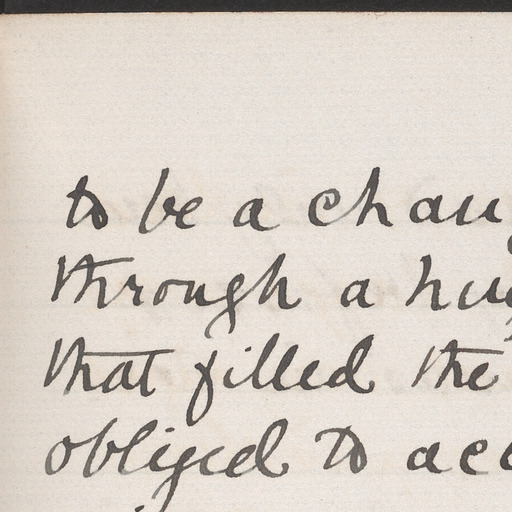 to be a chang
through a hug
that filled the
obliged to acc